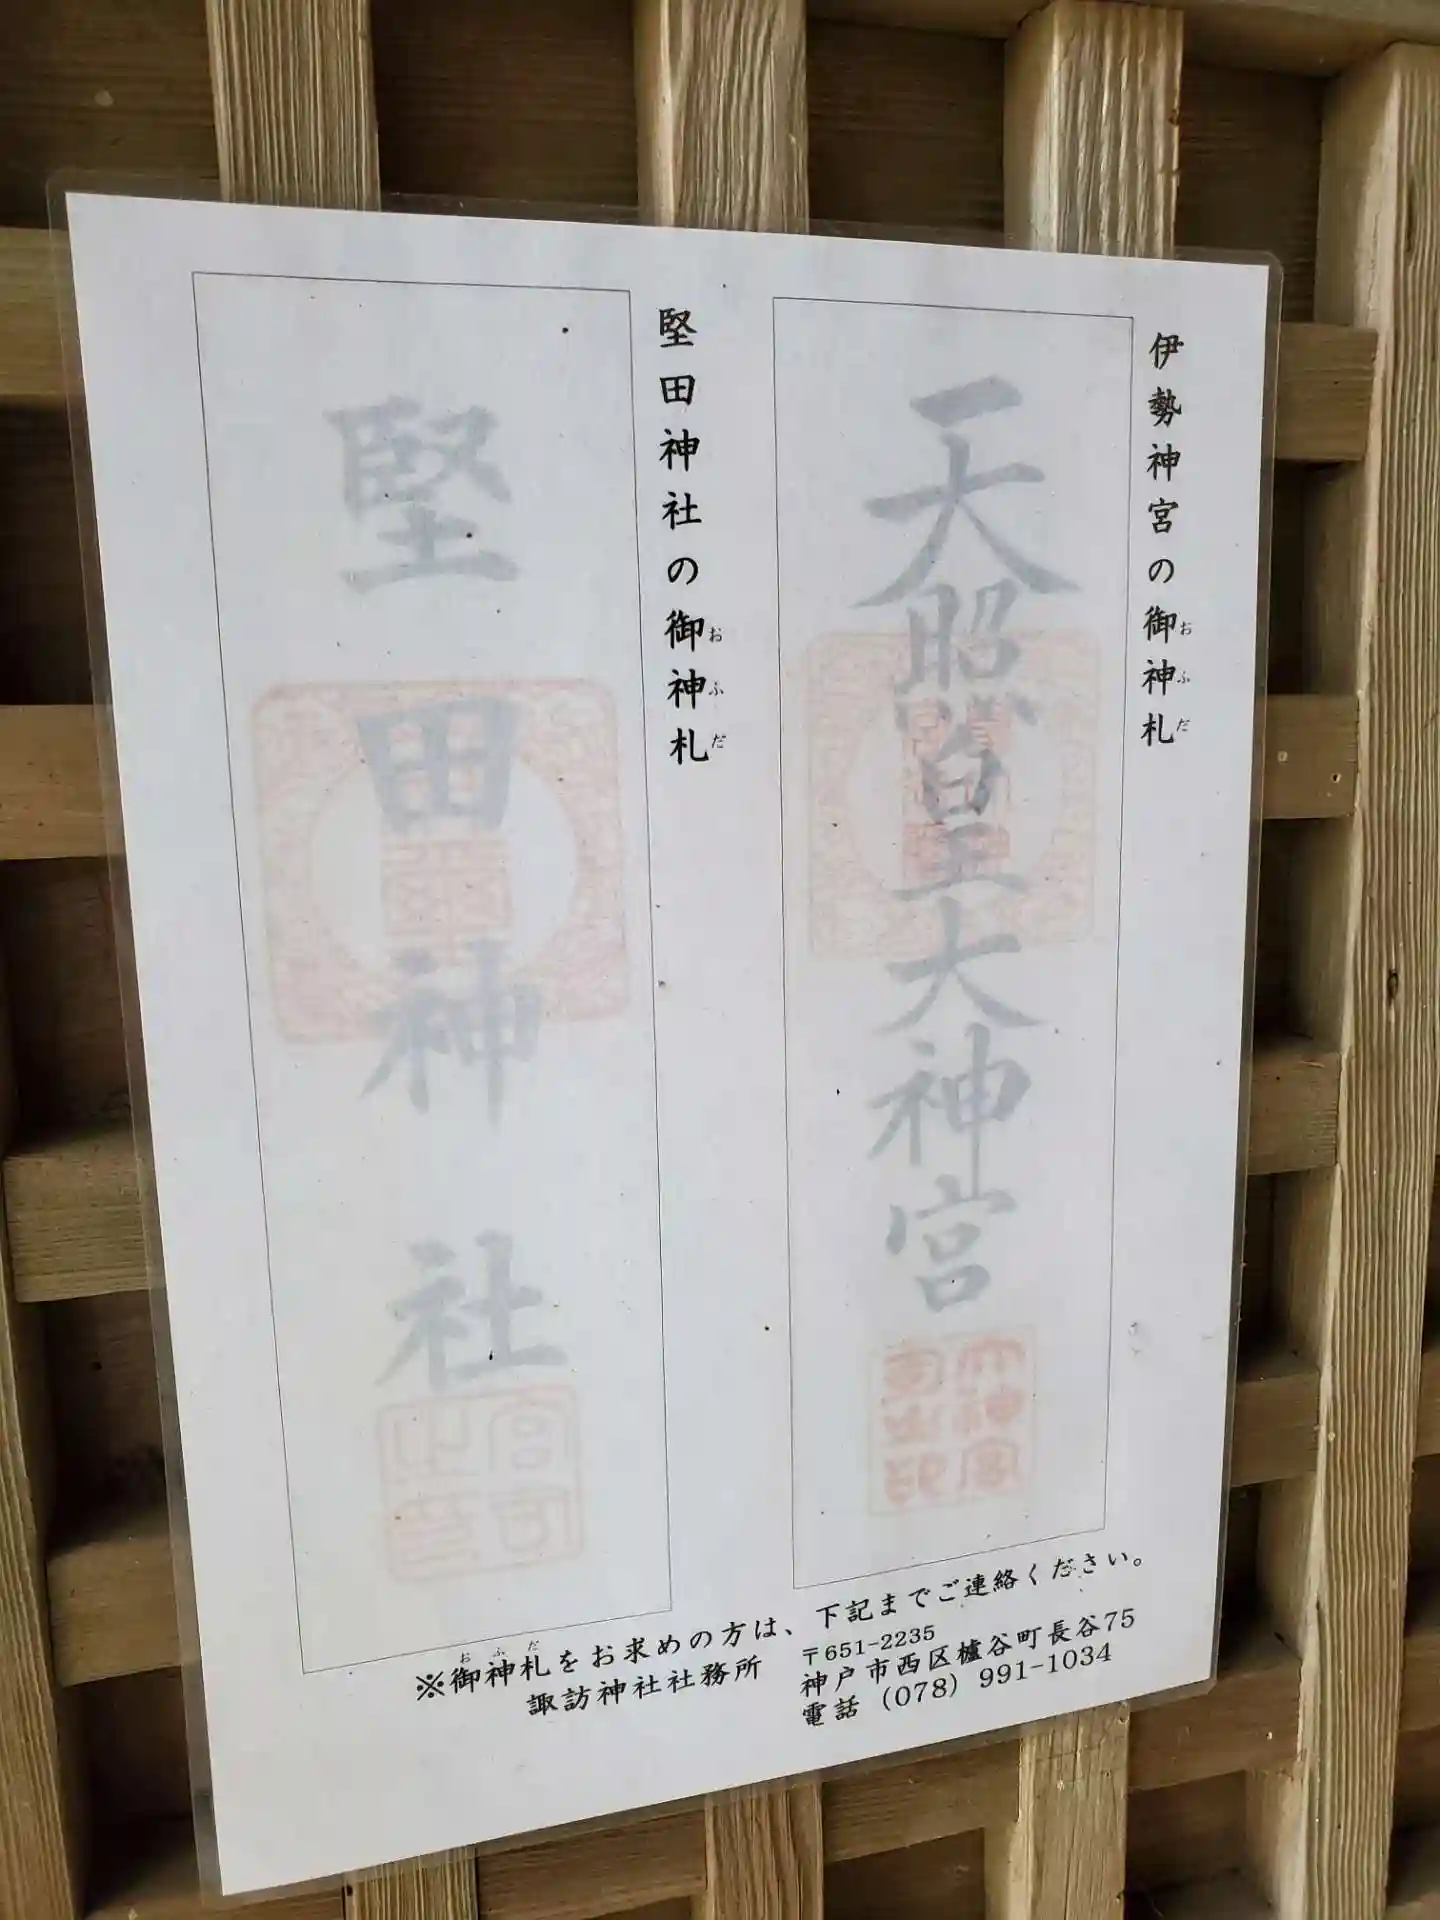 伊勢神宮の御神札
おふだ
天照皇大神宮
堅田神社の御神札
おふだ
堅田神社
※御神札をお求めの方は、下記までご連絡ください。
おふだ
諏訪神社社務所
〒651-2235
神戸市西区櫨谷町長谷75
電話（078）991-1034